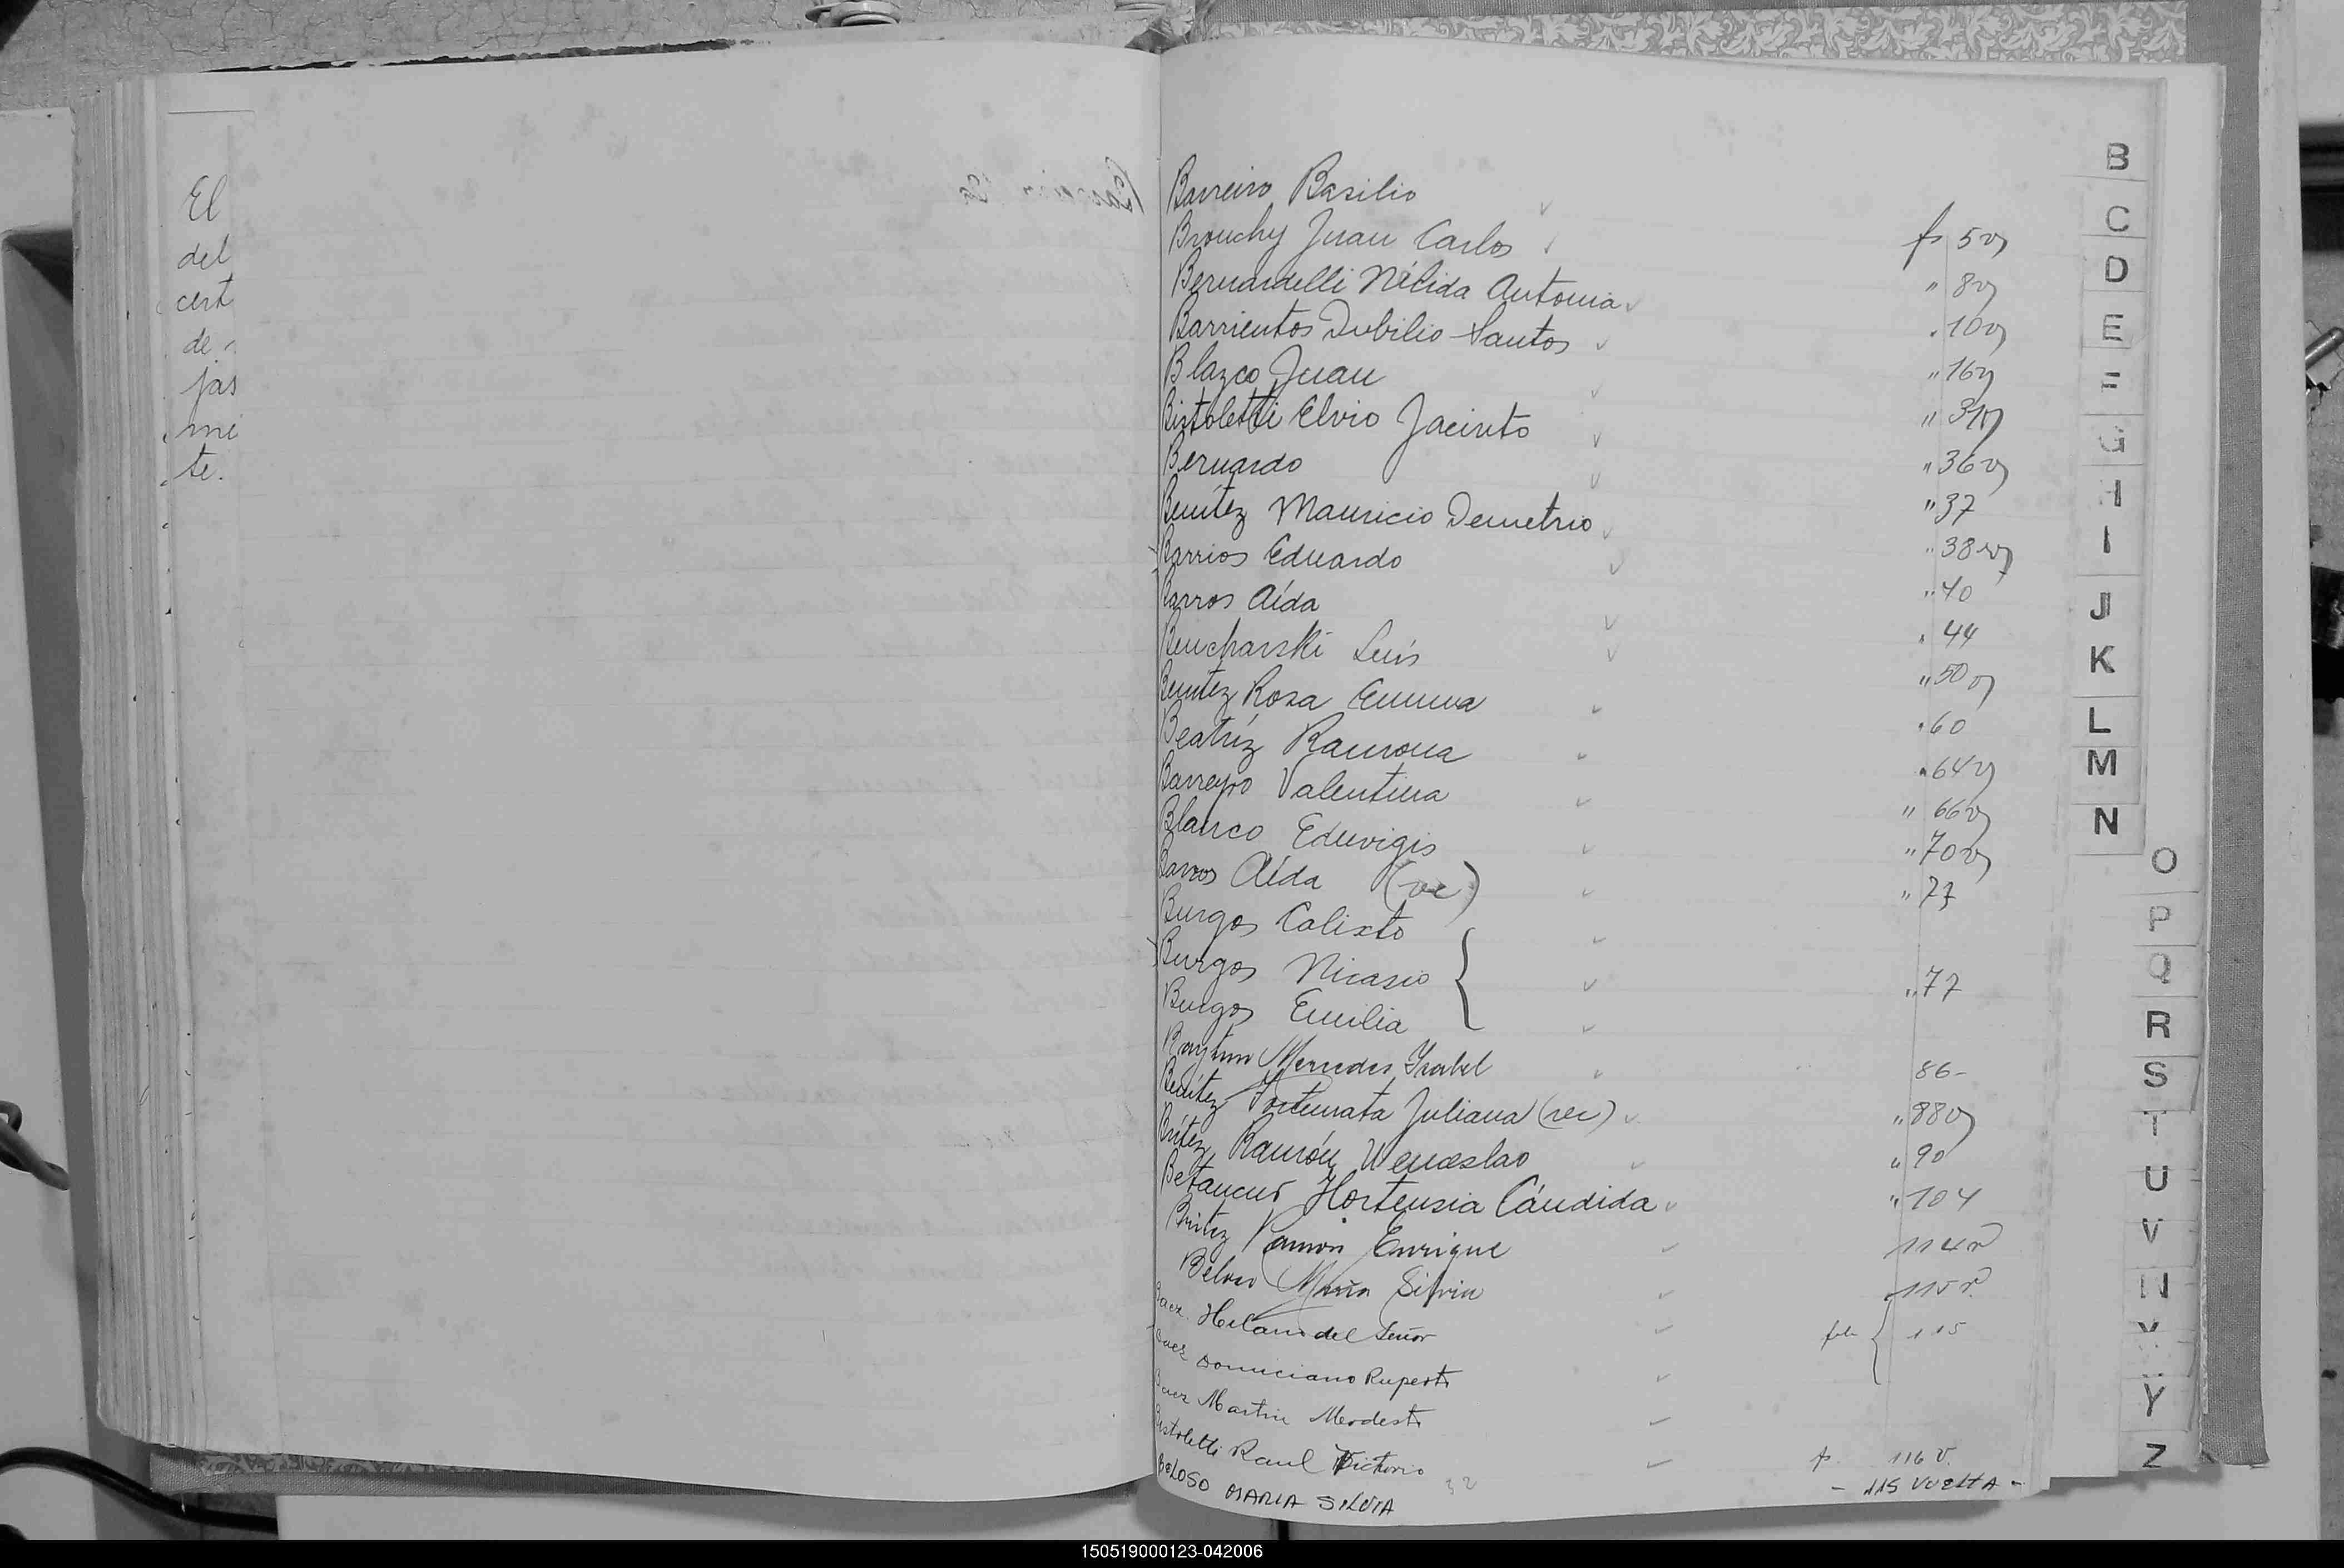 El
del
cert
de
jas
mi
te.
Barreiro Basilio
Brouchy Juan Carlos fs 5v
Bernardelli Nélida Antonia " 8v
Barrientos Dubilio Santos " 10v
Blazco Juan " 16v
Bistoletti Elvio Jacinto " 31v
Bernardo " 36v
Benítez Mauricio Demetrio " 37
Barrios Eduardo " 38v
Barros Aída " 40
Bencharski Luís " 44
Benítez Rosa Emma " 50v
Beatríz Ramona " 60
Barreyro Valentina " 64v
Blanco Eduvigis " 66v
Barros Aída (vc) " 70v
Burgos Calixto " 77
Burgos Nicasio
Burgos Emilia " 77
Mercedes Ysabel 86-
Benítez Fortunata Juliana (rec) " 88v
Brítez Ramón Wenceslao " 90
Betancur Hortensia Cándida " 104
Britez Ramon Enrique 114v
Beloso Maria Silvia 115v
Baez Hilario del Señor 115
Baez Domiciano Ruperto
Baez Martin Modesto
Bistoletti Raul Victorio fs 116 v.
BELOSO MARIA SILVIA - 115 VUELTA -
B
C
D
E
F
G
H
I
J
K
L
M
N
O
P
Q
R
S
T
U
V
W
X
Y
Z
150519000123-042006